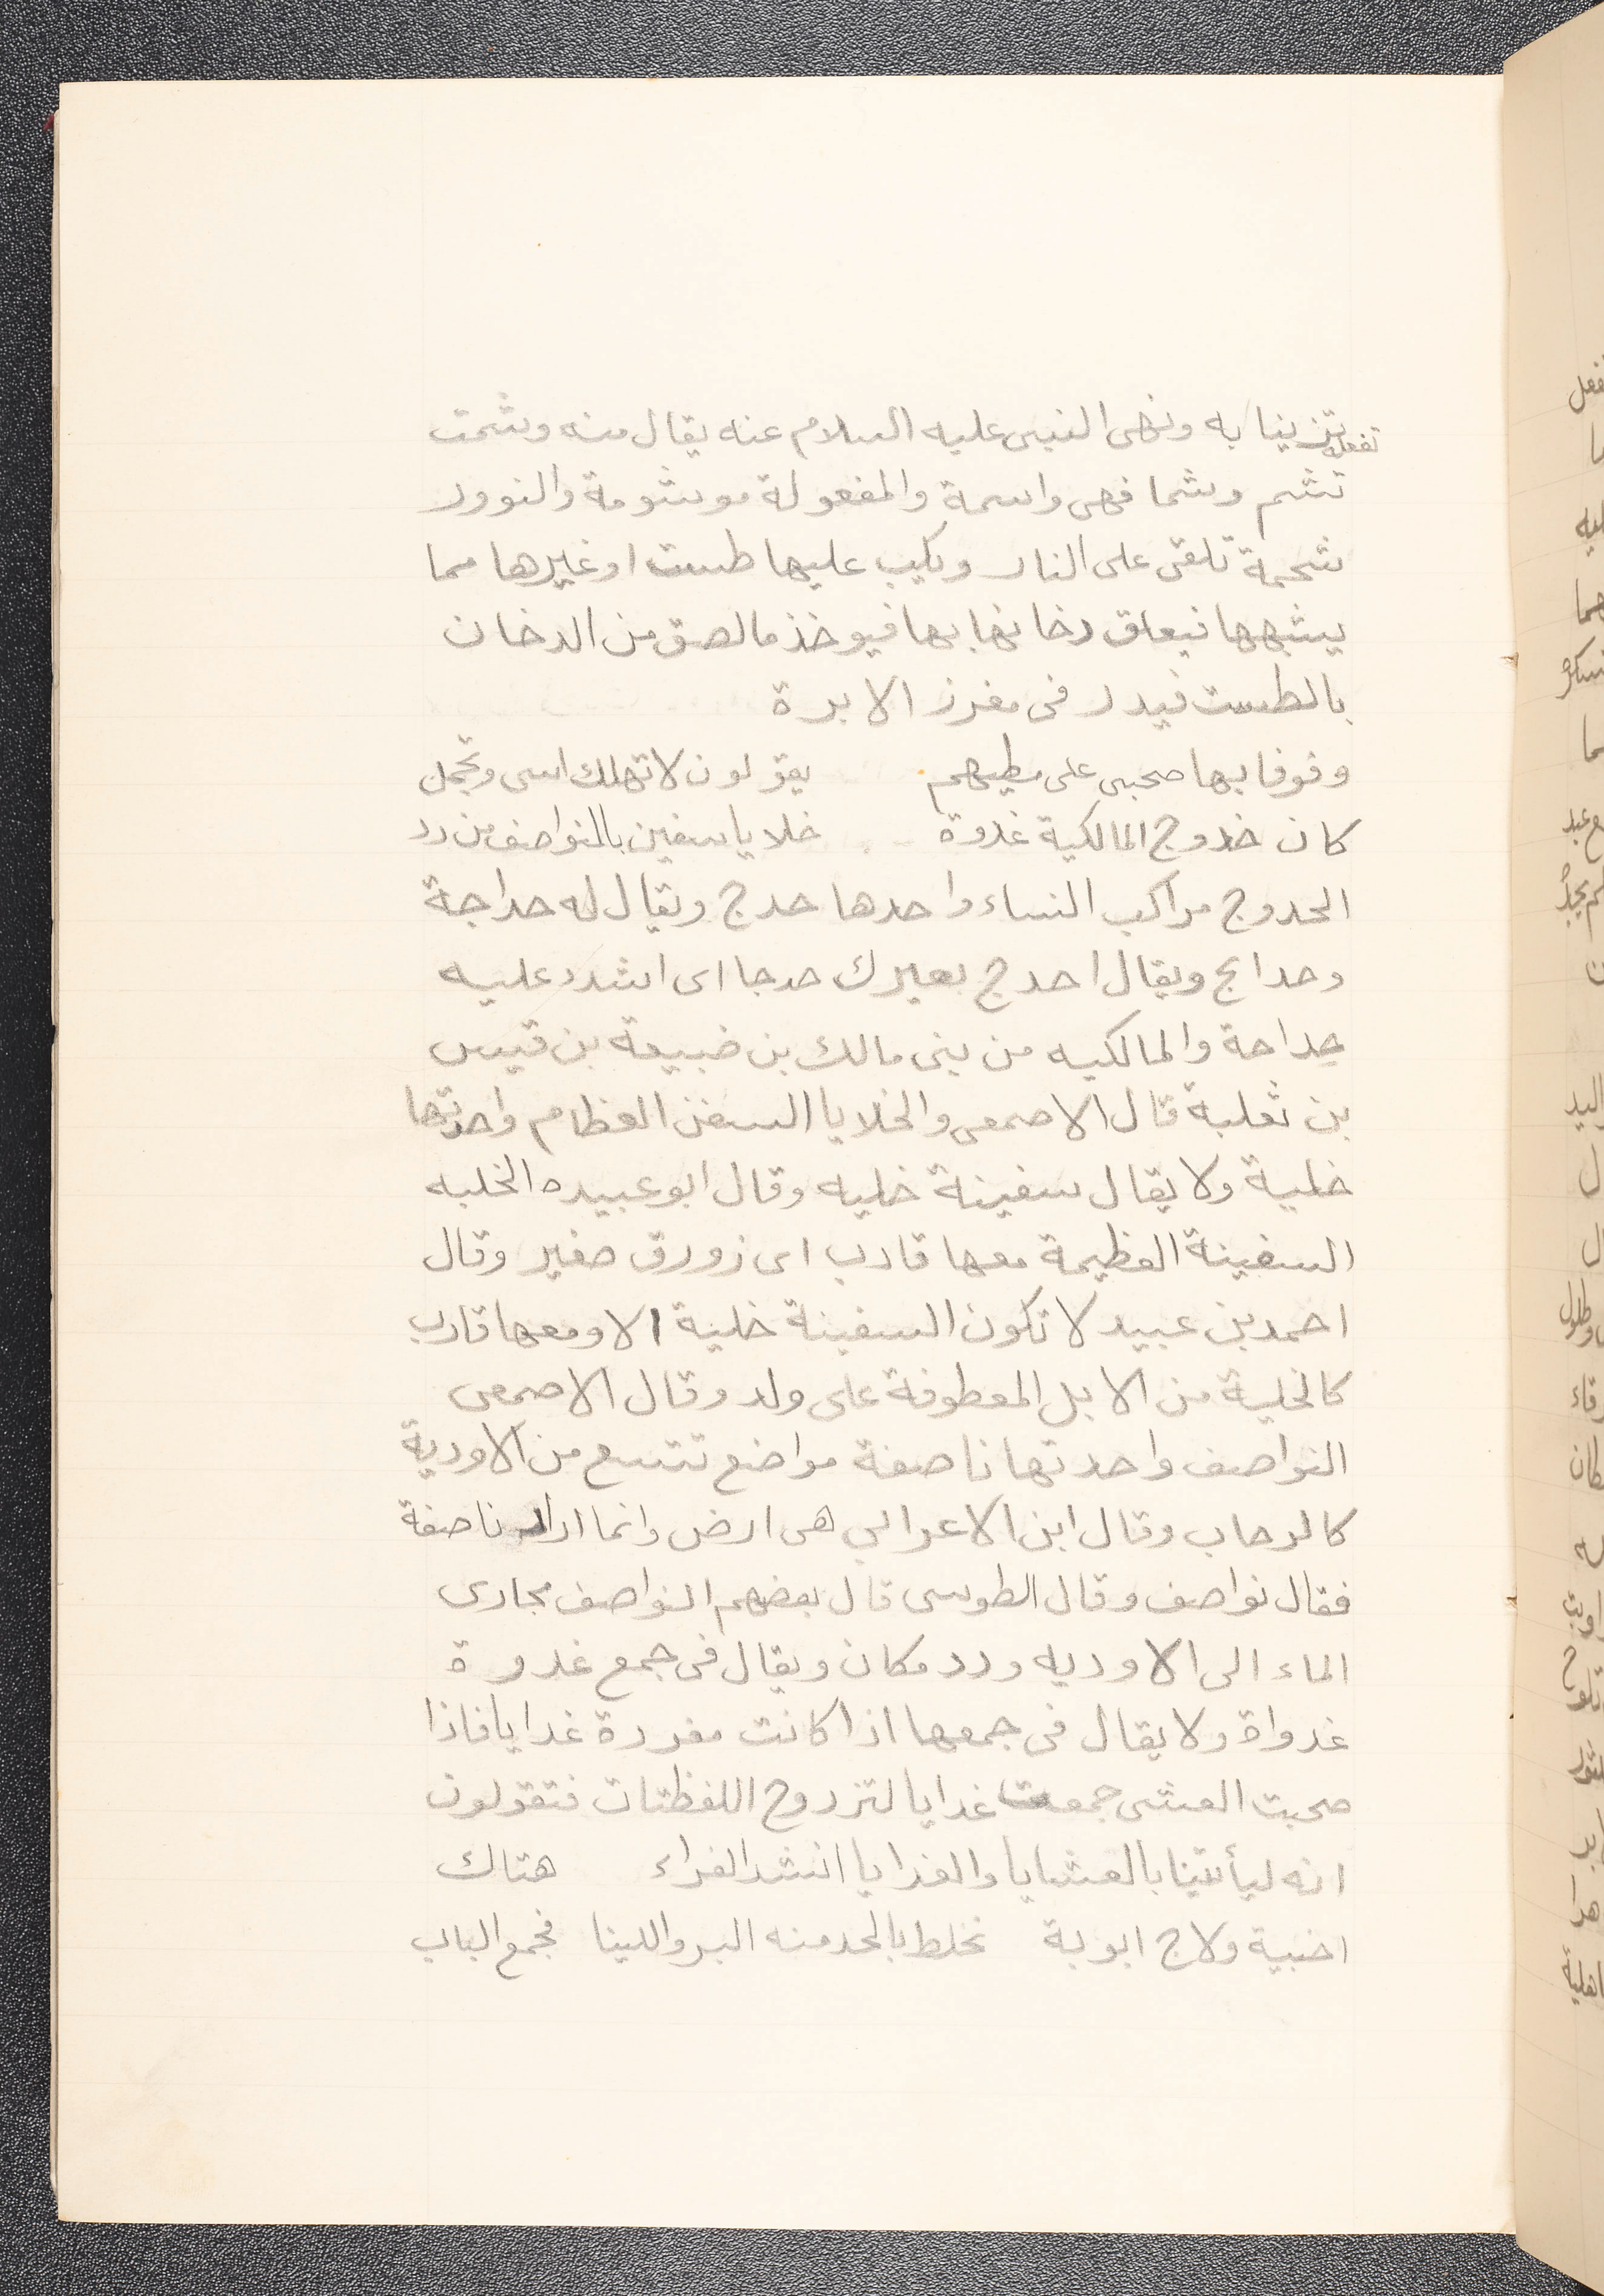 تفعله تزينا به ونهى النبى عليه السلام عنه يقال منه وشمت
تشم وشما فهى واسمة والمفعولة موشومة والنوور
شحيمة تلقى على النار ويكب عليها طست او غيرها مما
يشبهها فيعلق دخانها بها فيوخذ ما لصق من الدخان
بالطست فيدر فى مغرز الابرة
وفوفا بها صحبى على مطيهم يقولون لا تهلك اسى وتجمل
كان خدوج المالكية غدوة خلايا سفين بالنواصف من دد
الحدوج مراكب النساء واحدها حدج ويقال له حداجة
وحدايج ويقال احدج بعيرك حدجا اى اشدد عليه
حداجة والمالكيه من بنى مالك بن ضبيعة بن قيس
بن ثعلبة قال الاصمعى والخلايا السفن العظام واحدتها
خلية ولا يقال سفينة خليه وقال ابو عبيده الخليه
السفينة العظيمة معها قارب اى زورق صغير وقال
احمد بن عبيد لا تكون السفينة خلية الا ومعها قارب
كالخلية من الابل المعطوفة على ولد وقال الاصمعى
النواصف واحدتها ناصفة مواضع تتسع من الاودية
كالرحاب وقال ابن الاعرابي هى ارض وانما اراد ناصفة
فقال نواصف وقال الطوسى قال بعضهم النواصف مجارى
الماء الى الاوديه ودد مكان ويقال فى جمع غدوة
غدواة ولا يقال فى جمعها اذا كانت مفردة غدايا فاذا
صحبت العشى جمعت غدايا لتزدوج اللفظتان فتقولون
انه ليأتينا بالعشايا والغدايا انشد الفراء هتاك
اخبية ولاج ابوبة نخلط بالجد منه البر واللينا فجمع الباب